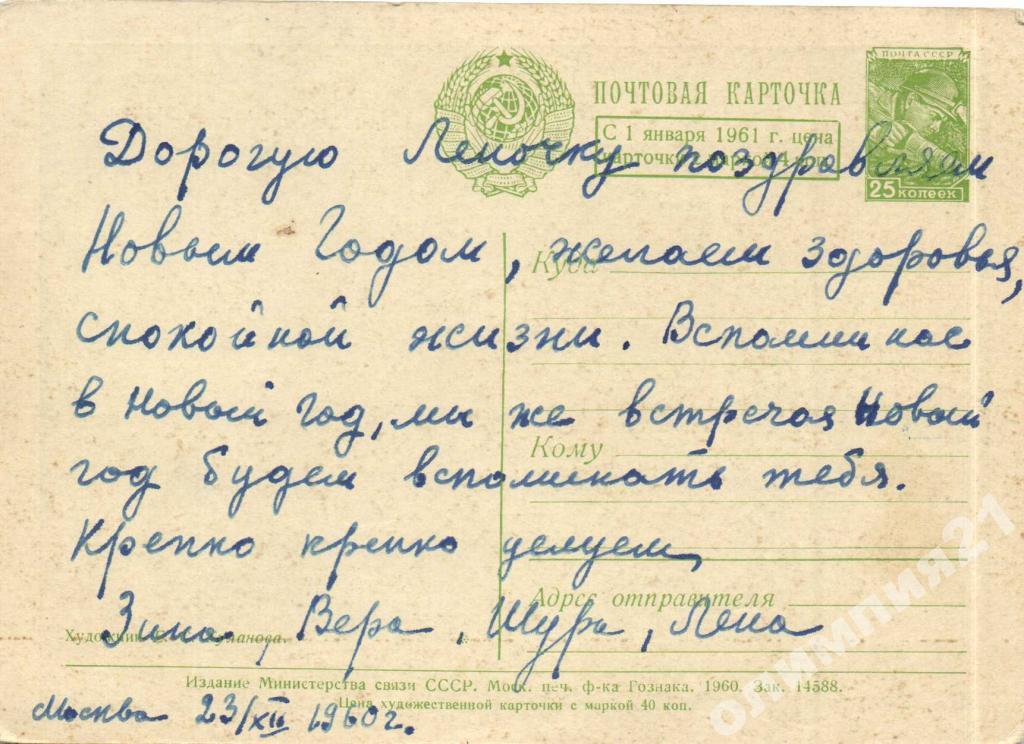 ПОЧТА СССР
ПОЧТОВАЯ КАРТОЧКА
С 1 января 1961 г. цена
карточки с маркой 4 коп.
25 копеек
Дорогую Леночку поздравляем
Новым Годом, желаем здоровья,
Куда
спокойной жизни. Вспомни нас
в Новый год, мы же встречая Новый
Кому
год будем вспоминать тебя.
Крепко крепко целуем
Адрес отправителя
Зина. Вера, Шура, Лена
Художник
Издание Министерства связи СССР. Моск. печ. ф-ка Гознака. 1960. Зак. 14588.
Цена художественной карточки с маркой 40 коп.
Москва 23/XII 1960 г.
олимпия21